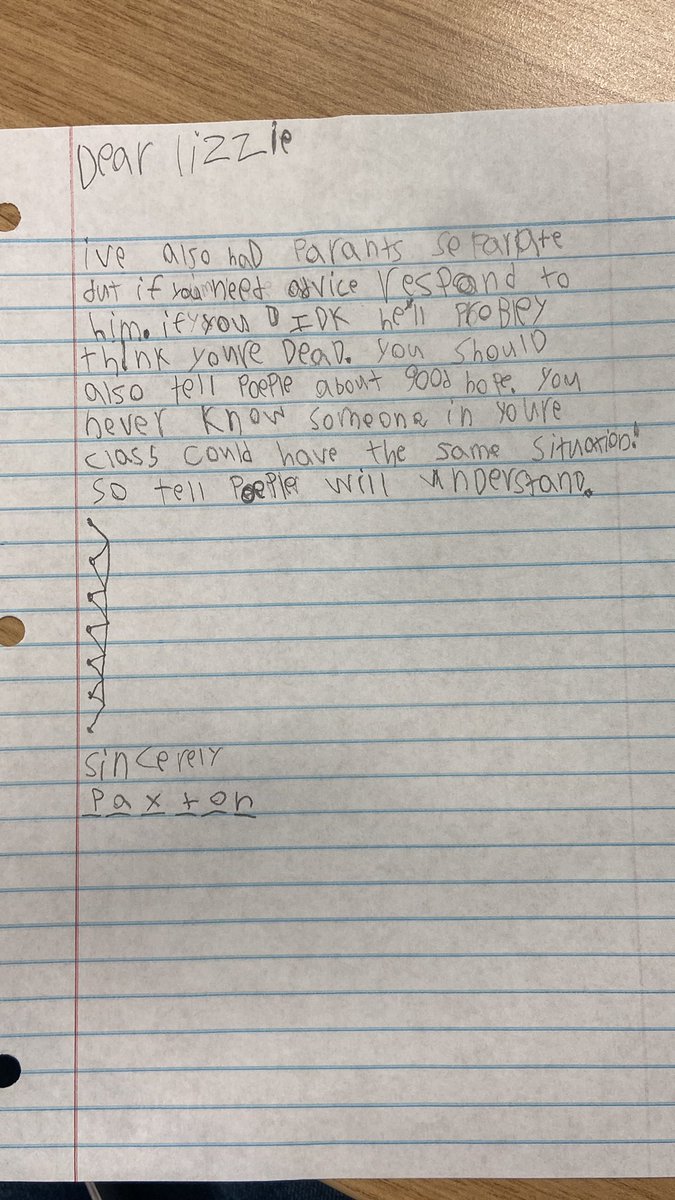 Dear lizzie
ive also had Parants separate
but if you need advice respond to
him. if you D IDK he'll Probley
think youre Dead. you should
also tell Poeple about good hope. you
never know someone in youre
class could have the same situation!
so tell Poeple will understand.
sincerely
Paxton